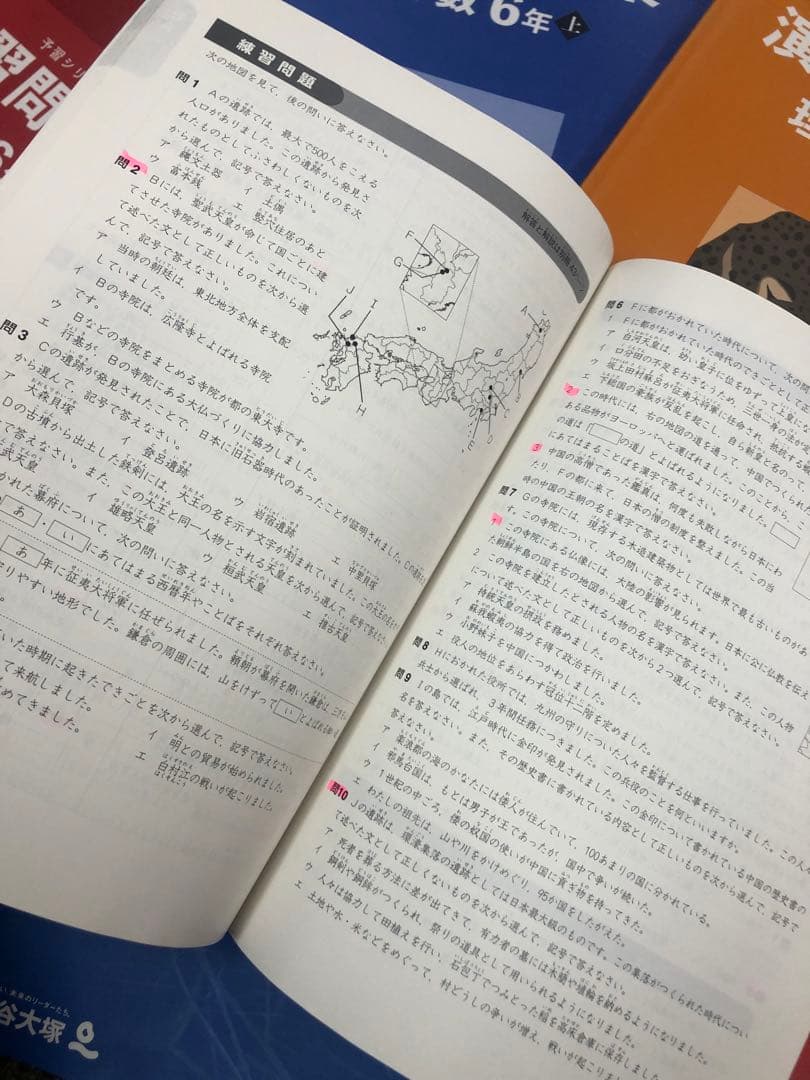 予習シリ
習問
数6年 上
演
理
練習問題
次の地図を見て、後の問いに答えなさい。
問1 Aの遺跡では、最大で500人をこえる
人口がありました。この遺跡から発見さ
れたものとしてふさわしくないものを次
から選んで、記号で答えなさい。
ア 縄文土器 イ 土偶
ウ 富本銭 エ 竪穴住居のあと
問2 Bには、聖武天皇が命じて国ごとに建
てさせた寺院がありました。これについ
て述べた文として正しいものを次から選
んで、記号で答えなさい。
ア 当時の朝廷は、東北地方全体を支配
していました。
イ Bの寺院は、広隆寺とよばれる寺院
です。
ウ Bなどの寺院をまとめる寺院が都の東大寺です。
エ 行基が、Bの寺院にある大仏づくりに協力しました。
問3 Cの遺跡が発見されたことで、日本に旧石器時代のあったことが証明されました。この遺跡を
から選んで、記号で答えなさい。
ア 大森貝塚 イ 登呂遺跡 ウ 岩宿遺跡 エ 中里貝塚
Dの古墳から出土した鉄剣には、大王の名を示す文字が刻まれていました。この大王の名を
て答えなさい。また、この大王と同一人物とされる天皇を次から選んで、記号で答えなさい。
武天皇 イ 雄略天皇 ウ 桓武天皇 エ 推古天皇
かれた幕府について、次の問いに答えなさい。
あ い にあてはまる西暦年やことばをそれぞれ答えなさい。
あ 年に征夷大将軍に任ぜられました。頼朝が幕府を開いた鎌倉は、三方が
りやすい地形でした。鎌倉の周囲には、山をけずって い とよばれる
いた時期に起きたできごとを次から選んで、記号で答えなさい。
て来航しました。 イ 明との貿易が始められました。
めてきました。 エ 白村江の戦いが起こりました。
解答と解説は別冊
F
G
J
I
H
A
B
C
D
E
問6 Fに都がおかれていた時代について、次の
1 Fに都がおかれていた時代のできごととして
ア 白河天皇は、幼い皇子に位をゆずって上皇に
イ 口分田の不足をおぎなうため、三世一身の法が
ウ 坂上田村麻呂が征夷大将軍に任命され、抵抗する
エ 下総国の豪族が反乱を起こし、自ら新皇と名のって
2 この時代には、右の地図の道を通って、中国でつくられた
ある品物がヨーロッパへと運ばれました。このことから、
の道は「 の道」とよばれるようになりました。
にあてはまることばを漢字で答えなさい。
3 中国の高僧であった鑑真は、何度も失敗しながら日本にわ
たり、Fの都に来て、日本の僧の制度を整えました。この当
時の中国の王朝の名を漢字で答えなさい。
問7 Gの寺院には、現存する木造建築物としては世界で最も古いものがあ
す。この寺院について、次の問いに答えなさい。
1 この寺院にある仏像には、大陸の影響が見られます。日本に公に仏教を伝え
た朝鮮半島の国を右の地図から選んで、記号で答えなさい。
2 この寺院を建立したとされる人物の名を漢字で答えなさい。また、この人物
について述べた文として正しいものを次から2つ選んで、記号で答えなさい。
ア 持統天皇の摂政を務めました。
イ 蘇我蝦夷の協力を得て政治を行いました。
ウ 小野妹子を中国につかわしました。
エ 役人の地位をあらわす冠位十二階を定めました。
問8 Hにおかれた役所では、九州の守りについた人々を監督する仕事を行っていました。この人々
兵士から選ばれ、3年間任務につきました。この兵役のことを何といいますか。
問9 Iの島では、江戸時代に金印が発見されました。この金印について書かれている中国の歴史書の
名を答えなさい。また、その歴史書に書かれている内容として正しいものを次から選んで、記号で
答えなさい。
ア 楽浪郡の海のかなたには倭人が住んでいて、100あまりの国に分かれている。
イ 邪馬台国は、もとは男子が王であったが、国中で争いが続いた。
ウ 1世紀の中ごろ、倭の奴国の使いが中国に貢ぎ物を持ってきた。
エ わたしの祖先は、山や川をかけめぐり、95か国をしたがえた。
問10 Jの遺跡は、環濠集落の遺跡としては日本最大級のものです。この集落がつくられた時代につい
て述べた文として正しくないものを次から選んで、記号で答えなさい。
ア 死者を葬る方法に差が出てきて、有力者の墓には木棺や埴輪を納めるようになりました。
イ 銅剣や銅鐸がつくられ、祭りの道具として用いられるようになりました。
ウ 人々は協力して田植えを行い、石包丁でつみとった稲を高床倉庫に保存しました
エ 土地や水、米などをめぐって、村どうしの争いが増え、戦いが起こりました
い、未来のリーダーたち。
谷大塚